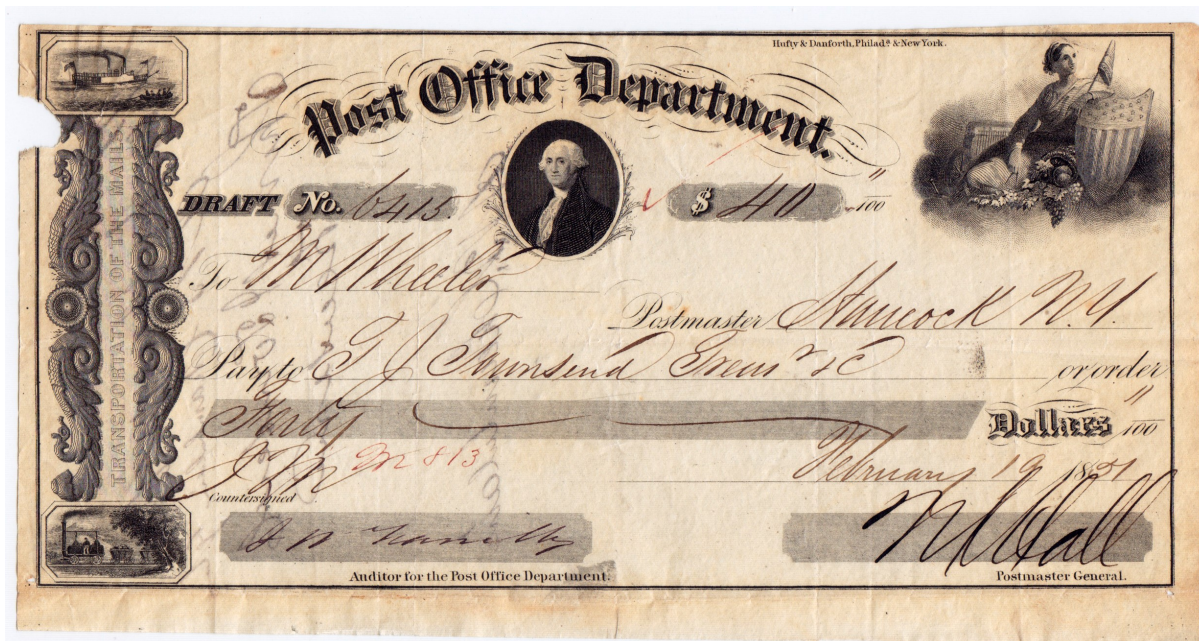 Hufty & Danforth, Philada. & New York.
Post Office Department.
TRANSPORTATION OF THE MAILS
DRAFT No. 6415. $ 40 "/100
To M Wheeler
Postmaster Hancock N.Y.
Pay to T J Townsend Treasr &c or order
Forty Dollars "/100
M 813
February 19 1851
Countersigned
N K Hall
Auditor for the Post Office Department.
Postmaster General.